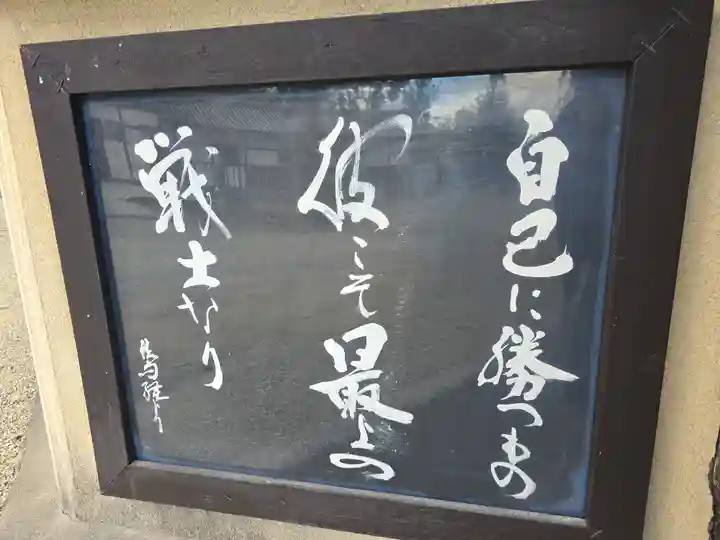 自己に勝つもの
彼こそ最上の
戦士なり
出馬経より